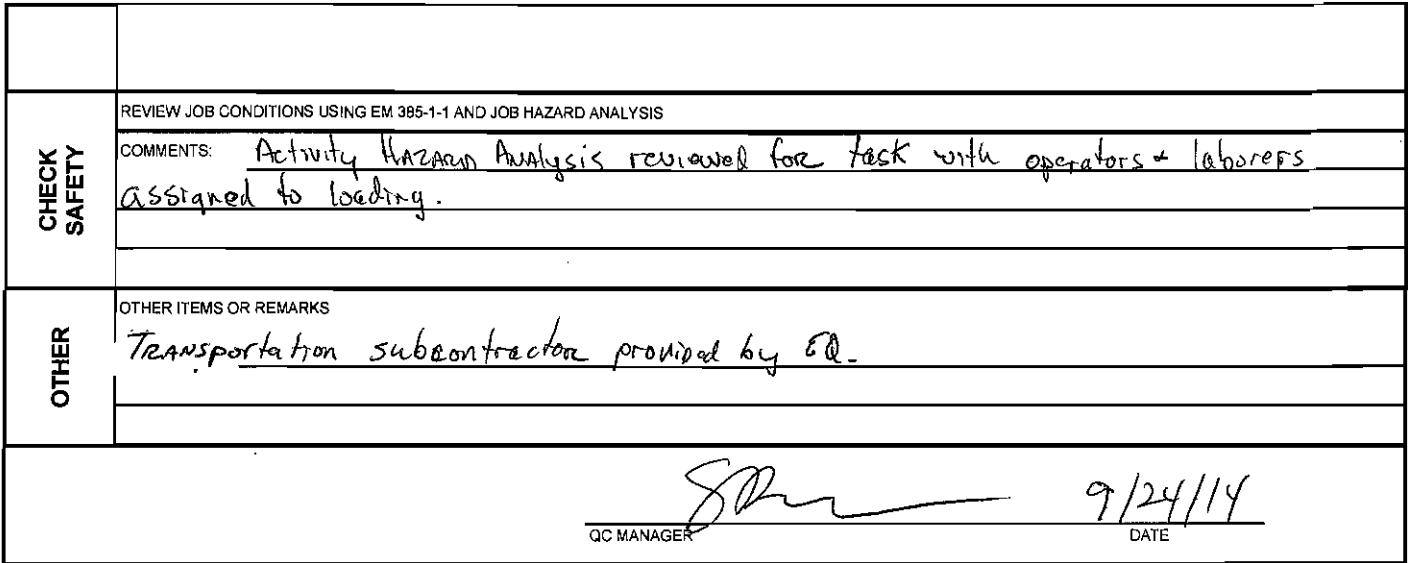 REVIEW JOB CONDITIONS USING EM 385-1-1 AND JOB HAZARD ANALYSIS
CHECK
SAFETY
COMMENTS: Activity Hazard Analysis reviewed for task with operators & laborers
assigned to loading.
OTHER ITEMS OR REMARKS
OTHER
Transportation subcontractor provided by EQ.
9/24/14
QC MANAGER DATE